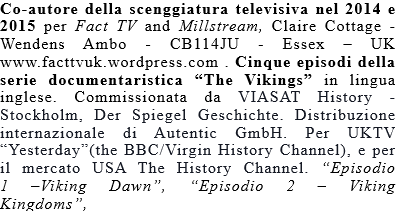 Co-autore della scenggiatura televisiva nel 2014 e
2015 per Fact TV and Millstream, Claire Cottage -
Wendens Ambo - CB114JU - Essex – UK
www.facttvuk.wordpress.com . Cinque episodi della
serie documentaristica “The Vikings” in lingua
inglese. Commissionata da VIASAT History -
Stockholm, Der Spiegel Geschichte. Distribuzione
internazionale di Autentic GmbH. Per UKTV
“Yesterday”(the BBC/Virgin History Channel), e per
il mercato USA The History Channel. “Episodio
1 –Viking Dawn”, “Episodio 2 – Viking
Kingdoms”,